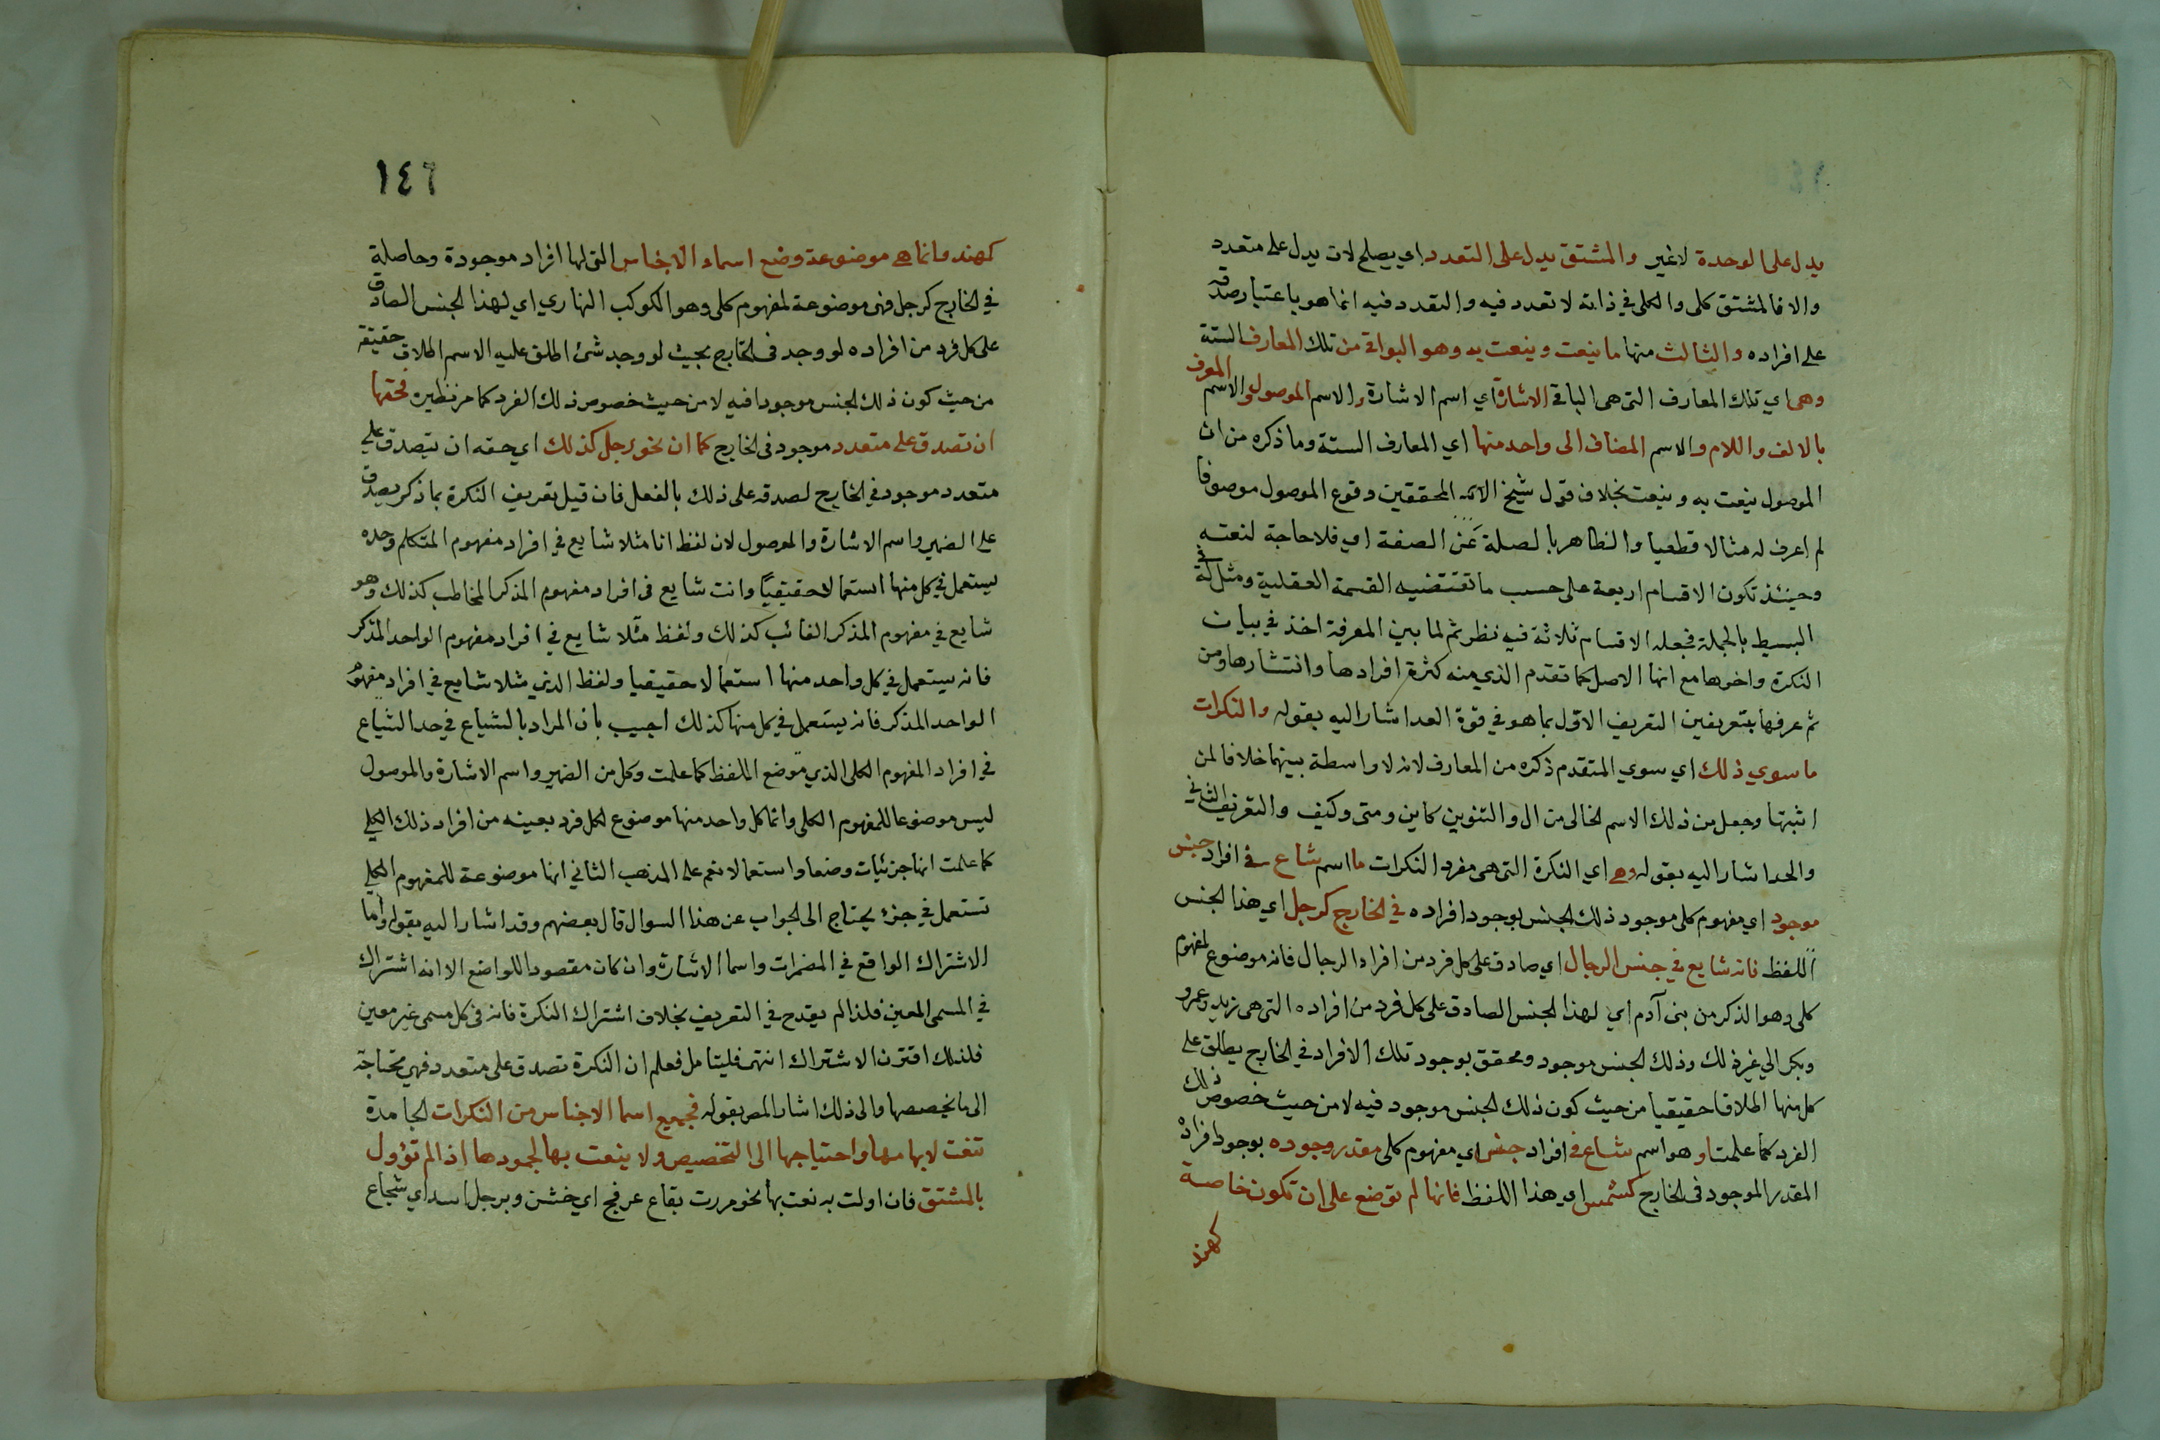 يدل على الوحدة لا غير والمشتق يدل على التعدد اي يصلح لان يدل على متعدد
والا فالمشتق كلى والكلى في ذاته لا تعدد فيه والتعدد فيه انما هو باعتبار صدقه
على افراده والثالث منها ما ينعت وينعت به وهو البواقي من تلك المعارف الستة
وهى اي تلك المعارف التى هى الباقي الاشارة اي اسم الاشارة والاسم الموصول والاسم المعرف
بالالف واللام والاسم المضاف الى واحد منها اي المعارف الستة وما ذكره من ان
الموصول ينعت به وينعت بخلاف قول شيخ الائمة المحققين وقوع الموصول موصوفا
لم اعرف له مثالا قطعيا والظاهر بالصلة عن الصفة اي فلا حاجة لنعته
وحينئذ تكون الاقسام اربعة على حسب ما تقتضيه القسمة العقلية ومثله في
البسيط بالجملة فجعله الاقسام ثلاثة فيه نظر ثم لما بين المعرفة اخذ في بيان
النكرة واخرها مع انها الاصل كما تقدم الذي منه كثرة افرادها وانتشارها ومن
ثم عرفها بتعريفين التعريف الاول بما هو في قوة العد اشار اليه بقوله والنكرات
ما سوي ذلك اي سوي المتقدم ذكره من المعارف لانه لا واسطة بينهما خلافا لمن
اثبتها وجعل من ذلك الاسم الخالى من ال والتنوين كاين ومتى وكيف والتعريف الثاني
والحد اشار اليه بقوله وهى اي النكرة التى هى مفرد النكرات ما اسم شاع في افراد جنس
موجود اي مفهوم كلى موجود ذلك الجنس بوجود افراده في الخارج كرجل اي هذا الجنس
اللفظ فانه شايع في جنس الرجال اي صادق على كل فرد من افراد الرجال فانه موضوع لمفهوم
كلى وهو الذكر من بنى آدم اي لهذا الجنس الصادق على كل فرد من افراده التى هى زيد وعمرو
وبكر الي غير ذلك وذلك الجنس موجود ومحقق بوجود تلك الافراد في الخارج يطلق على
كل منها اطلاقا حقيقيا من حيث كون ذلك الجنس موجود فيه لا من حيث خصوص ذلك
الفرد كما علمت او هو اسم شاع في افراد جنس اي مفهوم كلى مقدر وجوده بوجود افراده
المقدر الموجود فى الخارج كشمس اي هذا اللفظ فانها لم توضع على ان تكون خاصة
كهند
١٤٦
كهند وانما هى موضوعة وضع اسماء الاجناس التى لها افراد موجودة وحاصلة
في الخارج كرجل فهى موضوعة لمفهوم كلى وهو الكوكب النهاري اي لهذا الجنس الصادق
على كل فرد من افراده لو وجد فى الخارج بحيث لو وجد شئ اطلق عليه الاسم اطلاق حقيقة
من حيث كون ذلك الجنس موجودا فيه لا من حيث خصوص ذلك الفرد كما مر نظيره فحقها
ان تصدق على متعدد موجود فى الخارج كما ان نحو رجل كذلك اي حقه ان يتصدق على
متعدد موجود في الخارج لصدقه على ذلك بالفعل فان قيل تعريف النكرة بما ذكر يصدق
على الضمير واسم الاشارة والموصول لان لفظ انا مثلا شايع في افراد مفهوم المتكلم وحده
يستعمل في كل منها استعمالا حقيقيا وانت شايع فى افراد مفهوم المذكر المخاطب كذلك وهو
شايع في مفهوم المذكر الغائب كذلك ولفظ مثلا شايع في افراد مفهوم الواحد المذكر
فانه يستعمل في كل واحد منها استعمالا حقيقيا ولفظ الذي مثلا شايع في افراد مفهوم
الواحد المذكر فانه يستعمل في كل منها كذلك اجيب بان المراد بالشياع في حد الشياع
في افراد المفهوم الكلى الذي موضع اللفظ كما علمت وكل من الضمير واسم الاشارة والموصول
ليس موضوعا للمفهوم الكلى وانما كل واحد منها موضوع لكل فرد بعينه من افراد ذلك الكلي
كما علمت انها جزئيات وضعا واستعمالا نعم على المذهب الثاني انها موضوعة للمفهوم الكلي
تستعمل في جزء يحتاج الى الجواب عن هذا السوال قال بعضهم وقد اشار اليه بقوله واما
الاشتراك الواقع في المضمرات واسما الاشارة وان كان مقصودا للواضع الا انه اشتراك
في المسمى المعين فلذا لم يقدح في التعريف بخلاف اشتراك النكرة فانه فى كل مسمى غير معين
فلذلك افترق الاشتراك انتهى فليتامل فعلم ان النكرة تصدق على متعدد فهى محتاجة
الى ما يخصصها والى ذلك اشار المص بقوله فجميع اسما الاجناس من النكرات الجامدة
تنعت لابهامها واحتياجها الى التخصيص ولا ينعت بها لجمودها اذا لم تؤول
بالمشتق فان اولت به نعت بها نحو مررت بقاع عرفج اي خشن وبرجل اسد اي شجاع